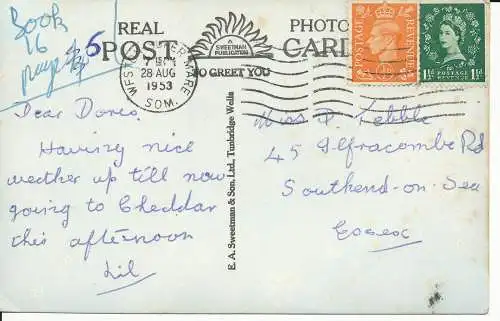 Book
16
page
REAL
PHOTO
POST
CARD
A
SWEETMAN
PUBLICATION
TO GREET YOU
WESTON-SUPER-MARE
28 AUG
1953
SOM.
POSTAGE
REVENUE
POSTAGE
REVENUE
1½D
1½D
E. A. Sweetman & Son, Ltd., Tunbridge Wells
Dear Doris
Having nice
weather up till now
going to Cheddar
this afternoon
Lil
Miss D. Kebble
45 Ilfracombe Rd
Southend-on-Sea
Essex